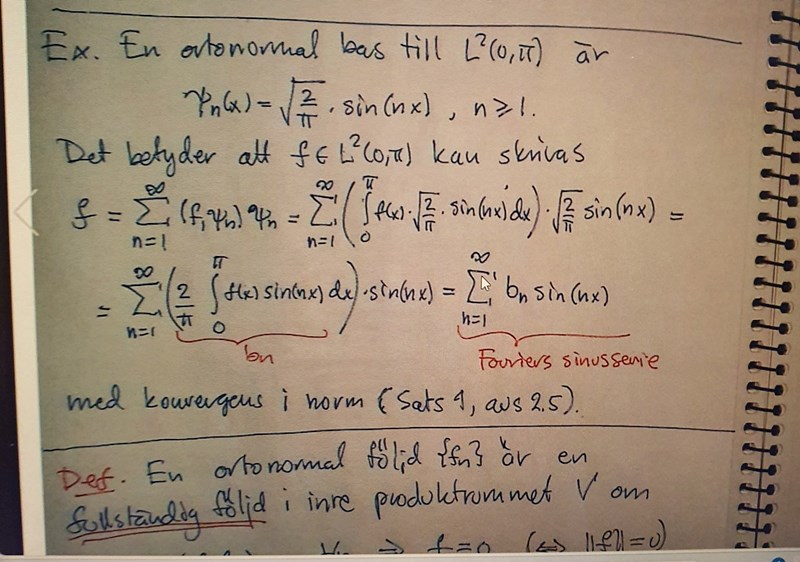 Ex. En ortonormal bas till L²(0,π) är
ψₙ(x) = √(2/π) · sin(nx) , n ≥ 1.
Det betyder att f ∈ L²(0,π) kan skrivas
f = ∑_{n=1}^{∞} (f,ψₙ) ψₙ = ∑_{n=1}^{∞} ( ∫_0^π f(x)·√(2/π) · sin(nx) dx ) · √(2/π) sin(nx) =
= ∑_{n=1}^{∞} ( 2/π ∫_0^π f(x) sin(nx) dx ) · sin(nx) = ∑_{n=1}^{∞} bₙ sin(nx)
bₙ Fouriers sinusserie
med konvergens i norm (Sats 1, avs 2.5).
Def. En ortonormal följd {fₙ} är en
fullständig följd i inre produktrummet V om
∀n ⇒ f = 0 (⇔ ||f|| = 0)